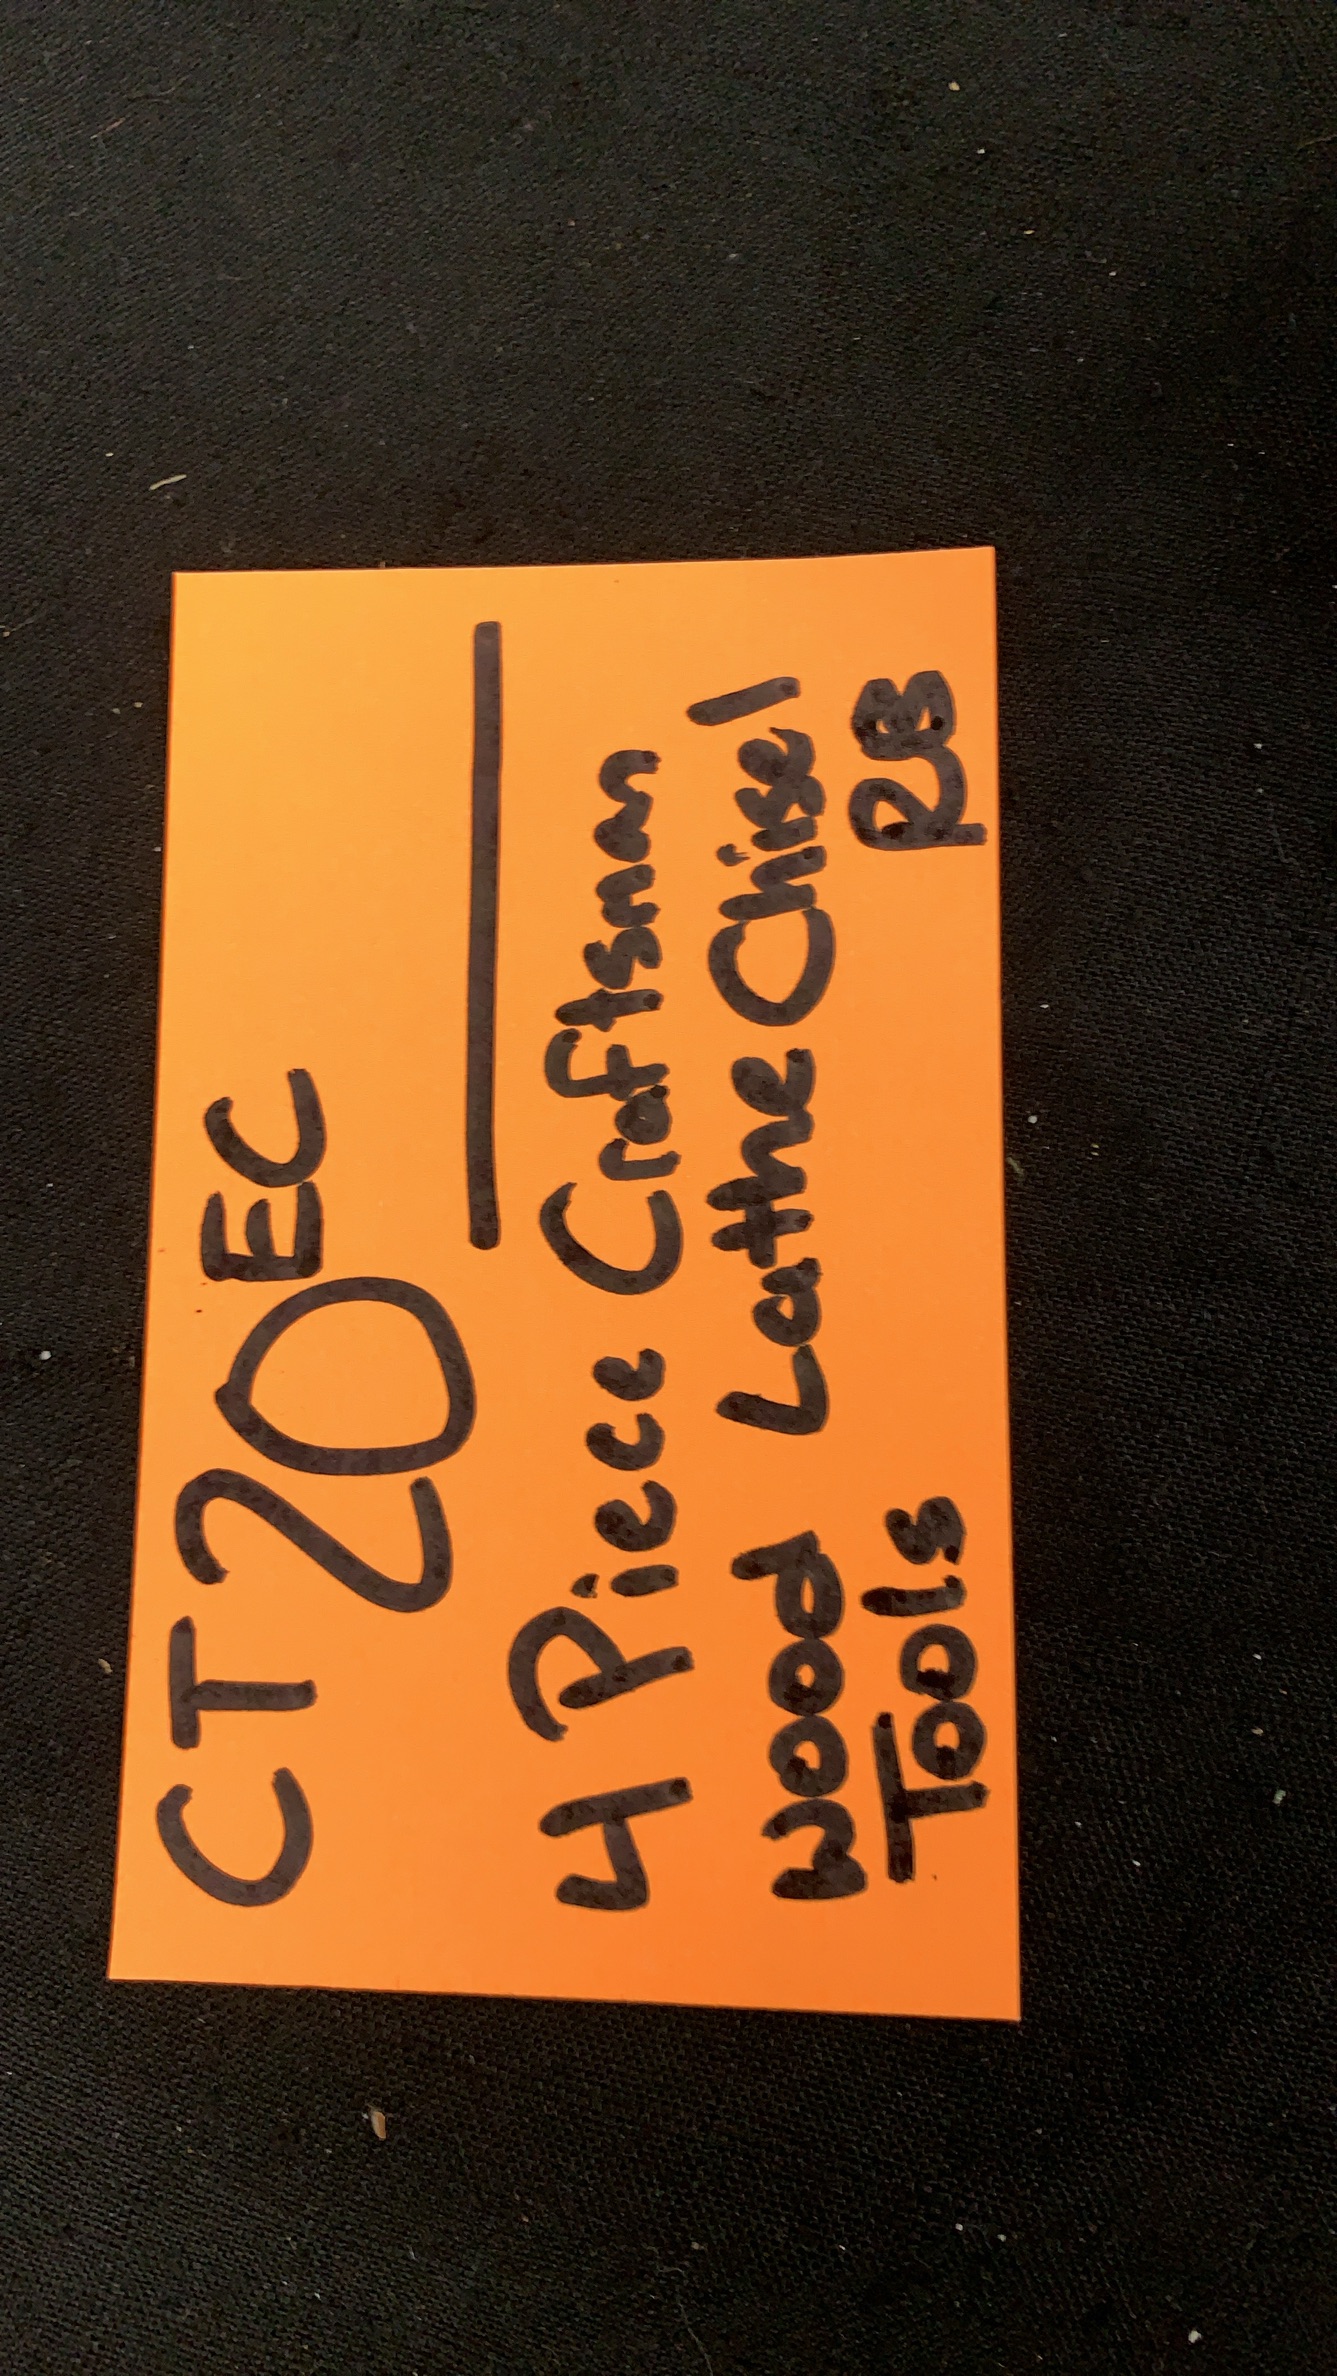 CT 20 EC
4 Piece Craftsman
Wood Lathe Chisel
Tools RB